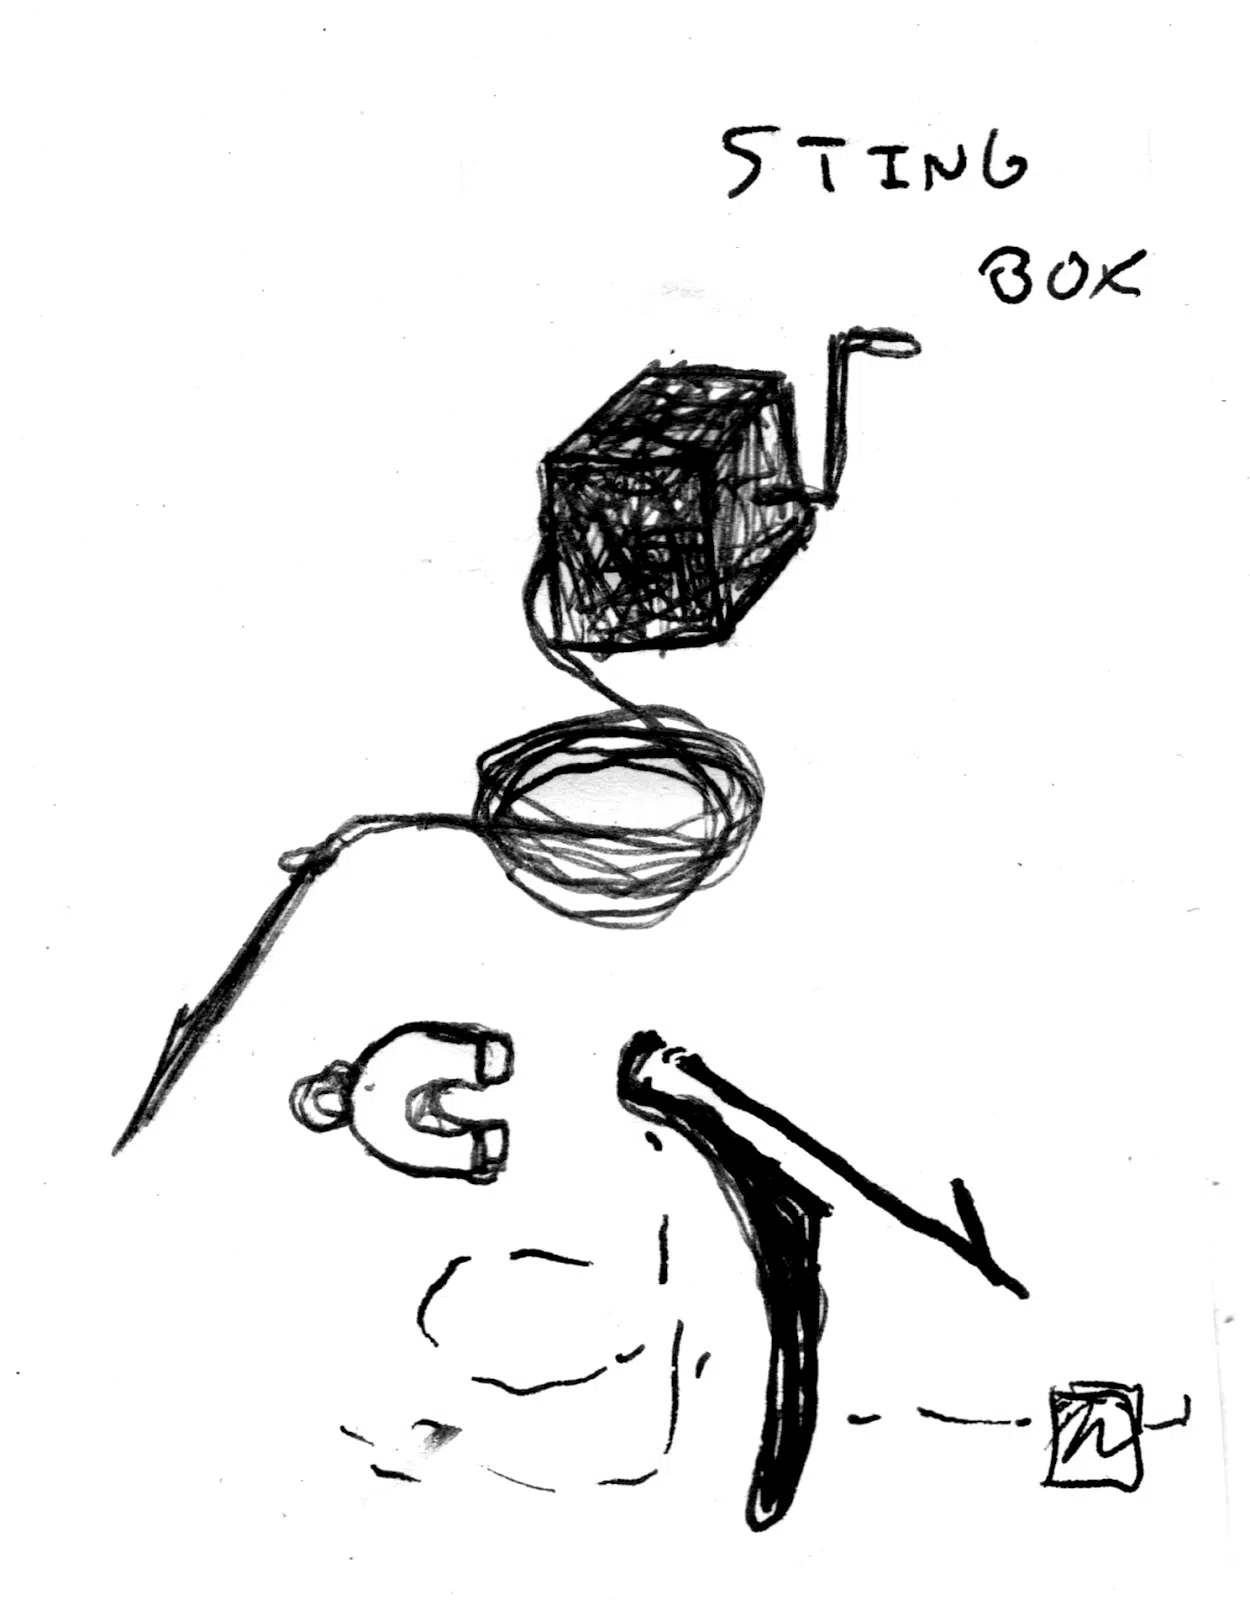 STING
BOX